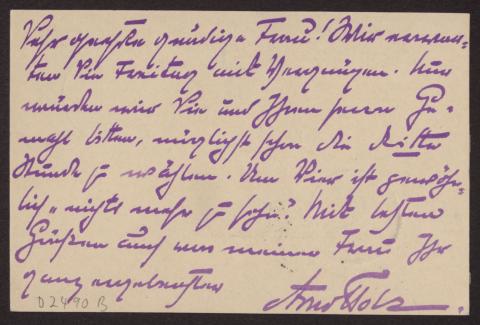 Sehr geehrte gnädige Frau! Wir erwar-
ten Sie Freitag mit Vergnügen. Nur
würden wir Sie und Ihren Herrn Ge-
mahl bitten, möglichst schon die dritte
Stunde zu wählen. Um Vier ist gewöhn-
lich „nichts mehr zu sehn". Mit besten
Grüßen auch von meiner Frau Ihr
ganz ergebenster
Arno Holz.
D2490 B